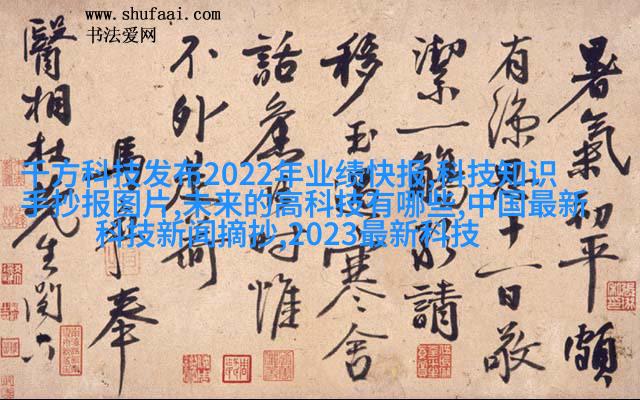 www.shufaai.com
书法爱网
千方科技发布2022年业绩快报,科技知识
手抄报图片,未来的高科技有哪些,中国最新
科技新闻摘抄,2023最新科技
暑氣初平頗
有涼十一日敬
潔一觴請
移玉寒舍
話舊惟
不外是荷
奉
醫相杜先生閣下